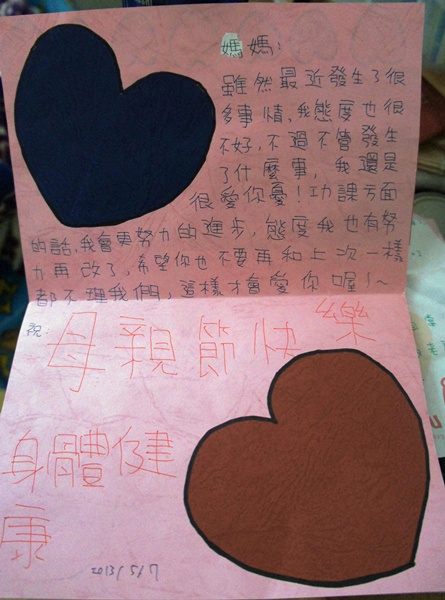 媽媽:
雖然最近發生了很
多事情,我態度也很
不好,不過不管發生
了什麼事,我還是
很愛你憂!功課方面
的話,我會更努力的進步,態度我也有努
力再改了,希望你也不要再和上次一樣
都不理我們,這樣才會愛你喔!~
祝:
母親節快樂
身體健
康
2013/5/7